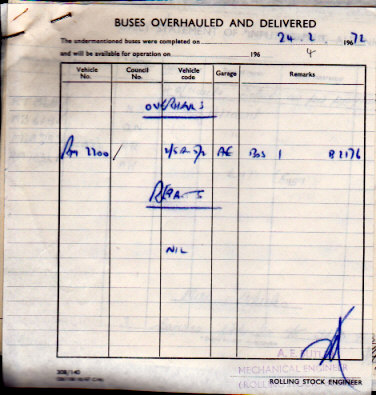 BUSES OVERHAULED AND DELIVERED
The undermentioned buses were completed on 24.2. 1967 2
and will be available for operation on 196 4
Vehicle No. Council No. Vehicle code Garage Remarks
OVERHAULS
RM 2200 / AE 1 B 1176
REPAIRS
NIL
A. E.
MECHANICAL ENGINEER
(ROLLING
308/140
ROLLING STOCK ENGINEER